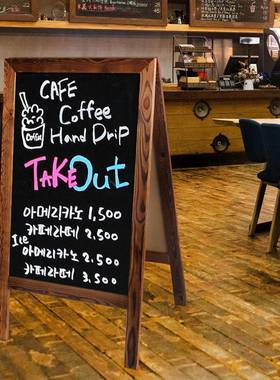 CAFE
Coffee
Hand Drip
Coffee
TAKE Out
아메리카노 1,500
카페라떼 2,500
Ice
아메리카노 2.500
카페라떼 3.500